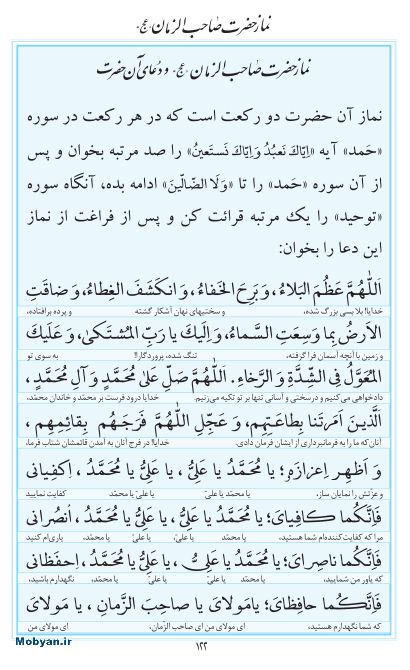 نماز حضرت صاحب الزمان ـ عج ـ
نماز حضرت صاحب الزمان ـ عج ـ و دعای آن حضرت
نماز آن حضرت دو رکعت است که در هر رکعت در سوره
«حَمد» آیه «اِیّاكَ نَعبُدُ وَاِیّاكَ نَستَعینُ» را صد مرتبه بخوان و پس
از آن سوره «حَمد» را تا «وَلَا الضّالّینَ» ادامه بده، آنگاه سوره
«توحید» را یك مرتبه قرائت کن و پس از فراغت از نماز
این دعا را بخوان:
اَللّٰهُمَّ عَظُمَ البَلاءُ، وَبَرِحَ الخَفاءُ، وَانکَشَفَ الغِطاءُ، وَضاقَتِ
خدایا! بلا بسی بزرگ شده، و سختیهای نهان آشکار گشته و پرده برافتاده،
الاَرضُ بِما وَسِعَتِ السَّماءُ، وَاِلَیكَ یا رَبِّ المُشتَکیٰ، وَ عَلَیكَ
و زمین با آنچه آسمان فرا گرفته، تنگ شده، پروردگارا! به سوی تو
المُعَوَّلُ فِی الشِّدَّةِ وَ الرَّخاءِ. اَللّٰهُمَّ صَلِّ عَلیٰ مُحَمَّدٍ وَ آلِ مُحَمَّدٍ،
دادخواهی می‌کنیم و درسختی و آسانی تنها بر تو تکیه می‌زنیم. خدایا درود فرست بر محمّد و خاندان محمّد،
الَّذینَ اَمَرتَنا بِطاعَتِهِم، وَ عَجِّلِ اللّٰهُمَّ فَرَجَهُم بِقائِمِهِم،
آنان‌که ما را به فرمانبرداری از ایشان فرمان دادی. خدایا! در فرج آنان به آمدن قائمشان شتاب فرما،
وَ اَظهِر اِعزازَهِ؛ یا مُحَمَّدُ یا عَلِیُّ، یا عَلِیُّ یا مُحَمَّدُ، اِکفِیانی
و عزّتش را نمایان ساز، یا محمّد یا علیّ یا علیّ یا محمّد، کفایت نمایید
فَاِنَّکُما کافِیایَ؛ یا مُحَمَّدُ یا عَلِیُّ، یا عَلِیُّ یا مُحَمَّدُ، اُنصُرانی
مرا که کفایت‌کننده‌ام شما هستید، یا محمّد یا علیّ یا علیّ یا محمّد، یاری‌ام کنید
فَاِنَّکُما ناصِرایَ؛ یا مُحَمَّدُ یا عَلِیُّ، یا عَلِیُّ یا مُحَمَّدُ، اِحفَظانی
که یاور من شمایید، یا محمّد یا علیّ یا علیّ یا محمّد، نگهدارم باشید،
فَاِنَّکُما حافِظایَ؛ یا مَولایَ یا صاحِبَ الزَّمانِ، یا مَولایَ
که شما نگهدارم هستید، ای مولای من ای صاحب الزمان، ای مولای من
۱۲۲
Mobyan.ir